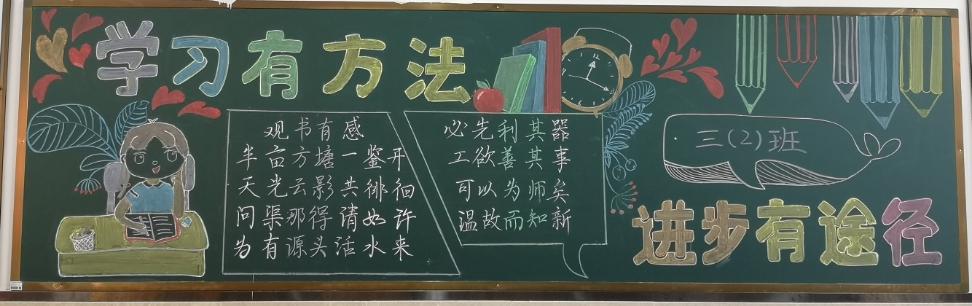 学习有方法
观书有感
半亩方塘一鉴开
天光云影共徘徊
问渠那得清如许
为有源头活水来
必先利其器
工欲善其事
可以为师矣
温故而知新
三(2)班
进步有途径